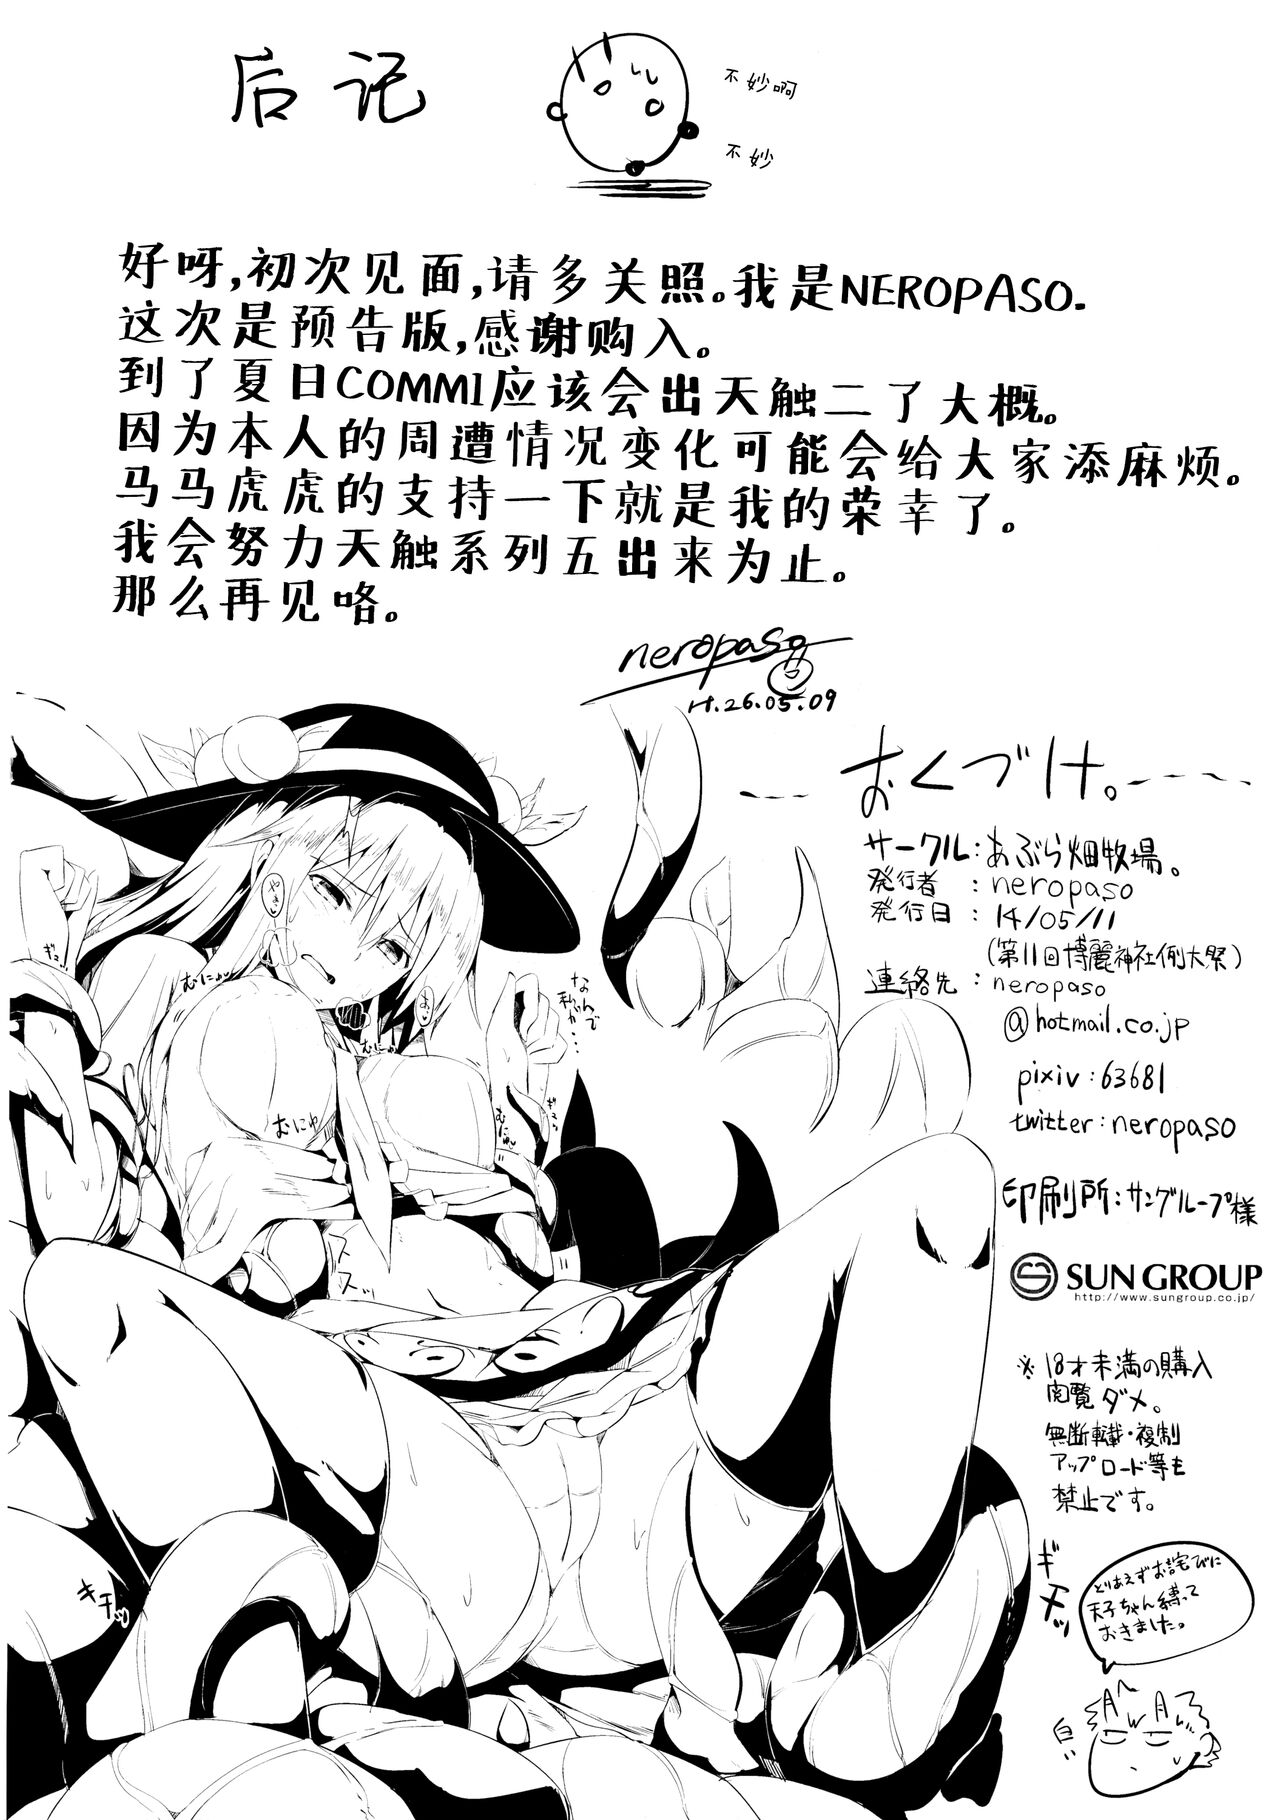 后记
不妙啊
不妙
好呀,初次见面,请多关照。我是NEROPASO.
这次是预告版,感谢购入。
到了夏日COMM1应该会出天触二了大概。
因为本人的周遭情况变化可能会给大家添麻烦。
马马虎虎的支持一下就是我的荣幸了。
我会努力天触系列五出来为止。
那么再见咯。
neropaso
H.26.05.09
おくづけ。
サークル:あぶら畑牧場。
発行者:neropaso
発行日:14/05/11
(第11回博麗神社例大祭)
連絡先:neropaso
@hotmail.co.jp
pixiv:63681
twitter:neropaso
印刷所:サングループ様
SUN GROUP
http://www.sungroup.co.jp/
※18才未満の購入
閲覧ダメ。
無断転載・複制
アップロード等も
禁止です。
とりあえずお詫びに
天子ちゃん縛って
おきました。
なんで
私が・・・
むにゅ
むにゅ
むにゅ
ギッ
ギチッ
キチッ